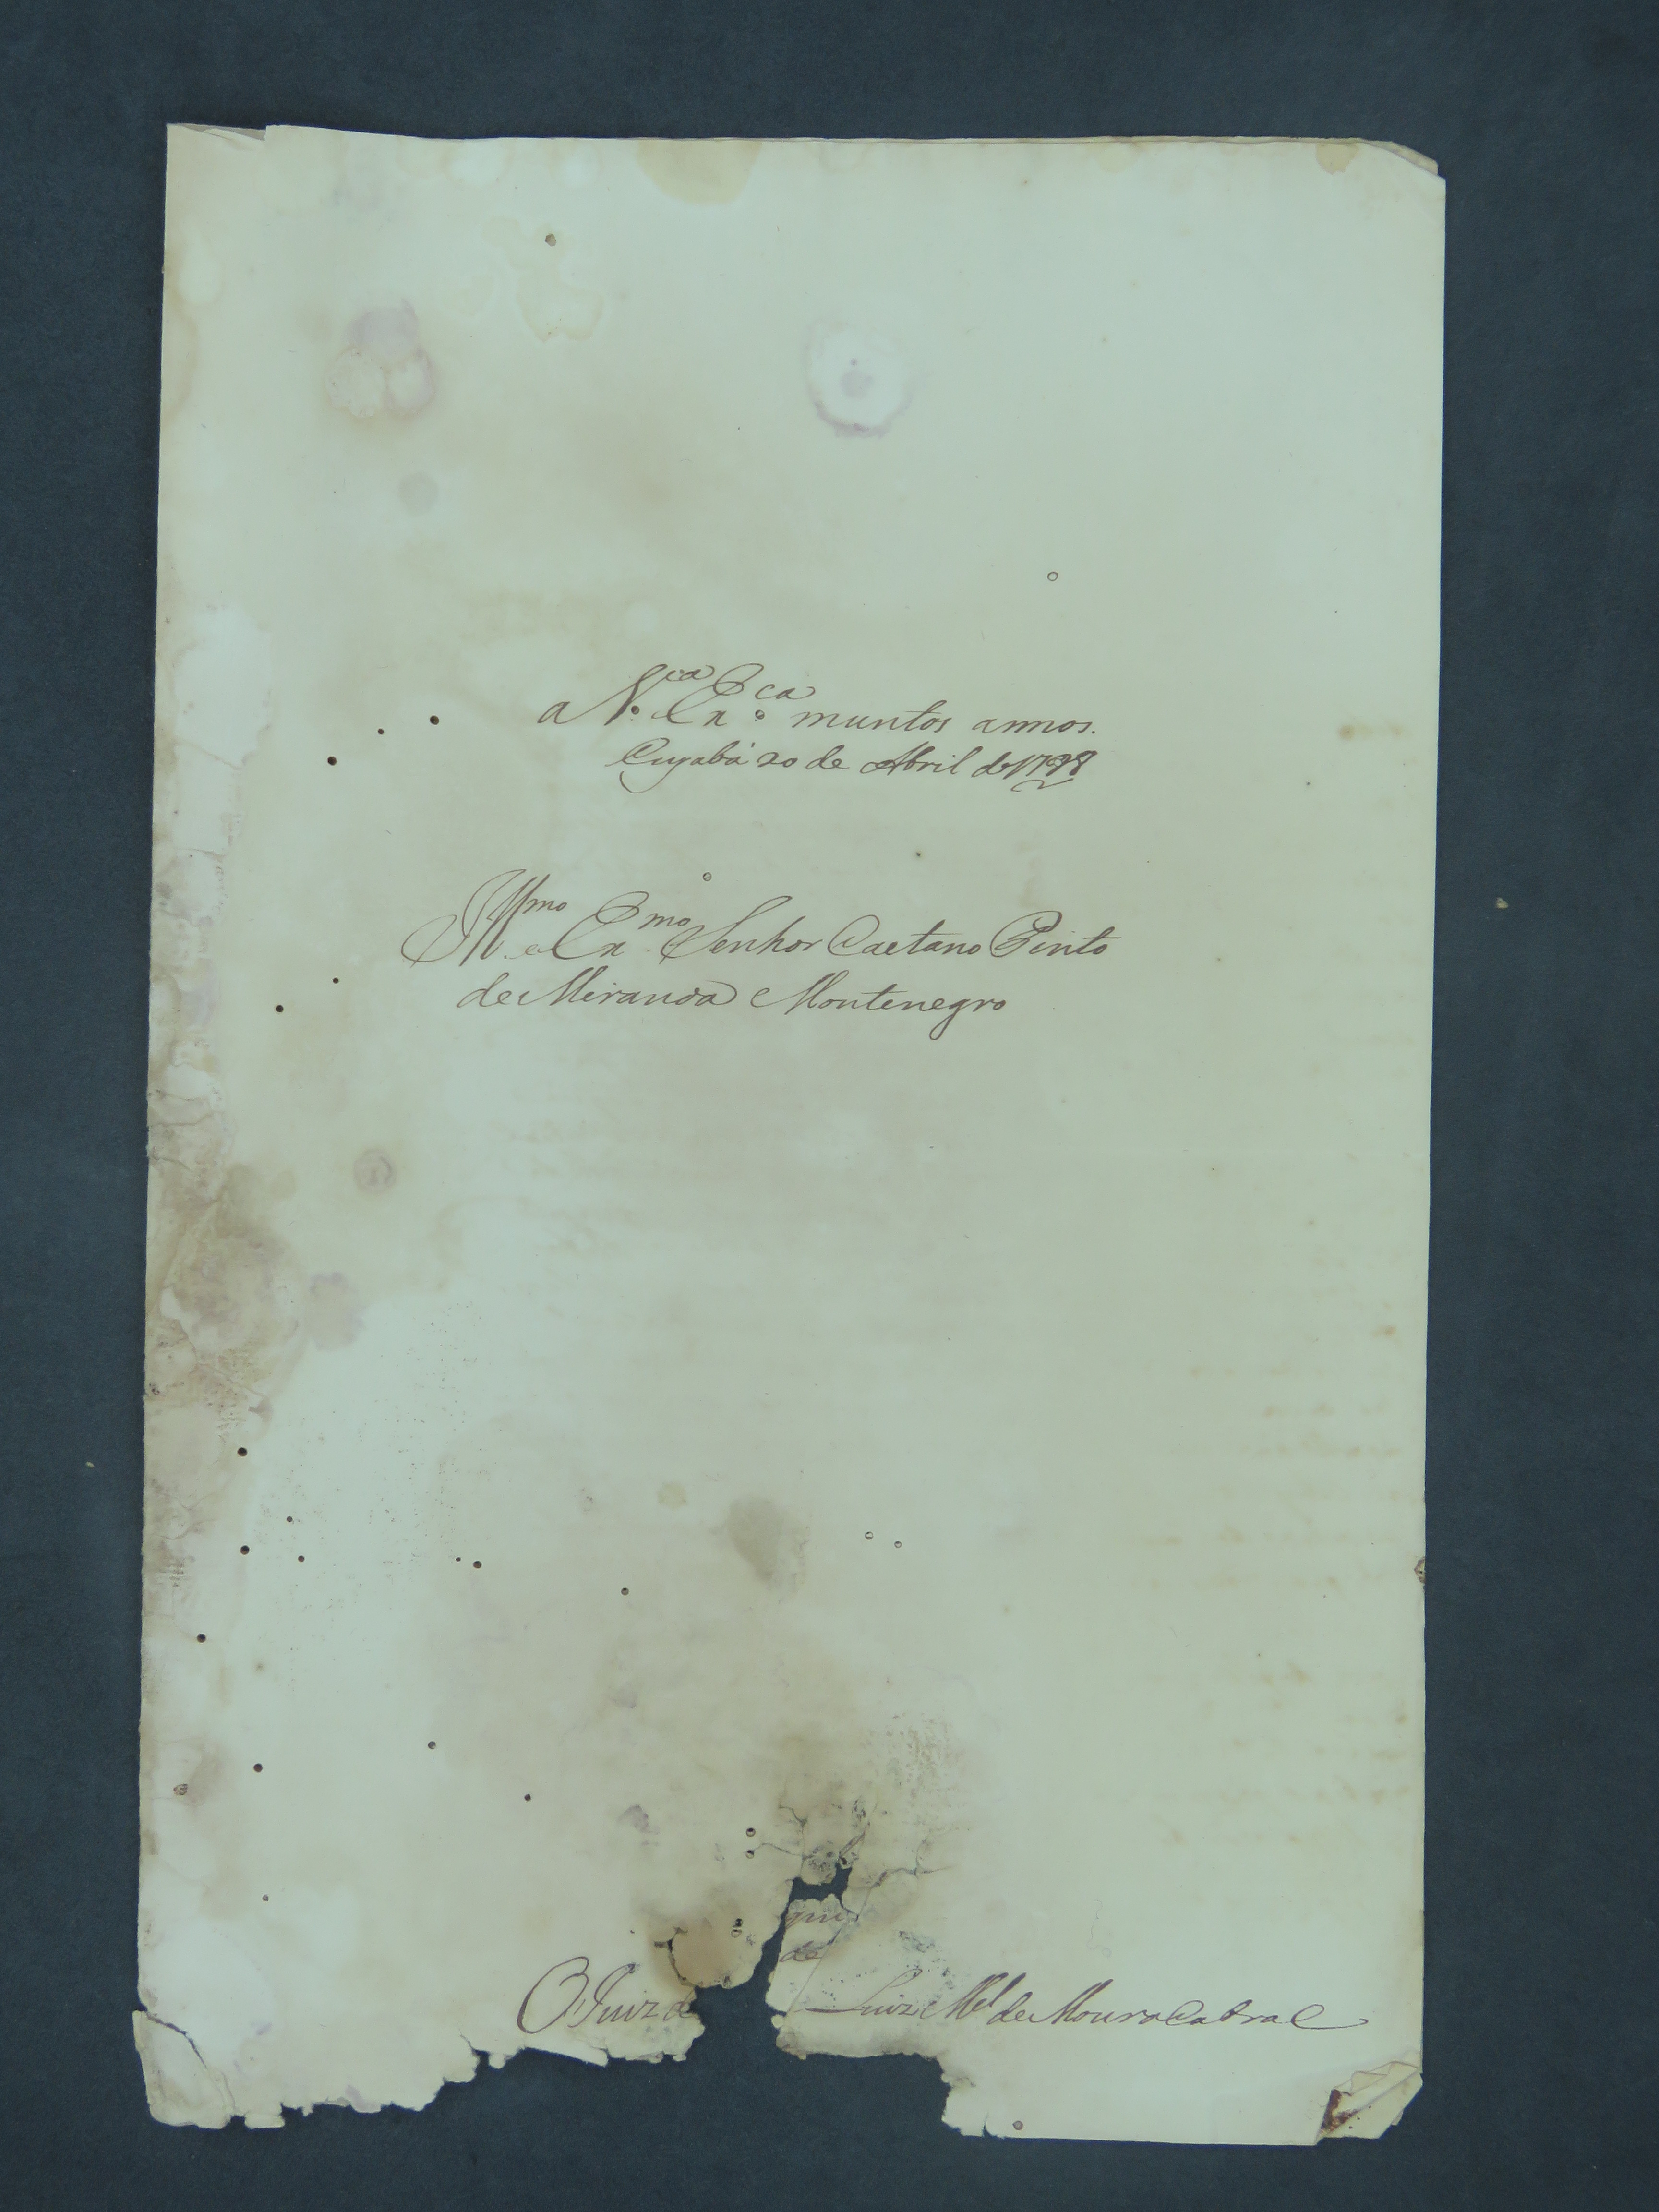 a V.ca Ex.ca muntos annos.
Cuyabá 20 de Abril de 1798
Illmo e Exmo Senhor Caetano Pinto
de Miranda Montenegro
que
de
O Juiz de Luiz Mel de Moura Cabral